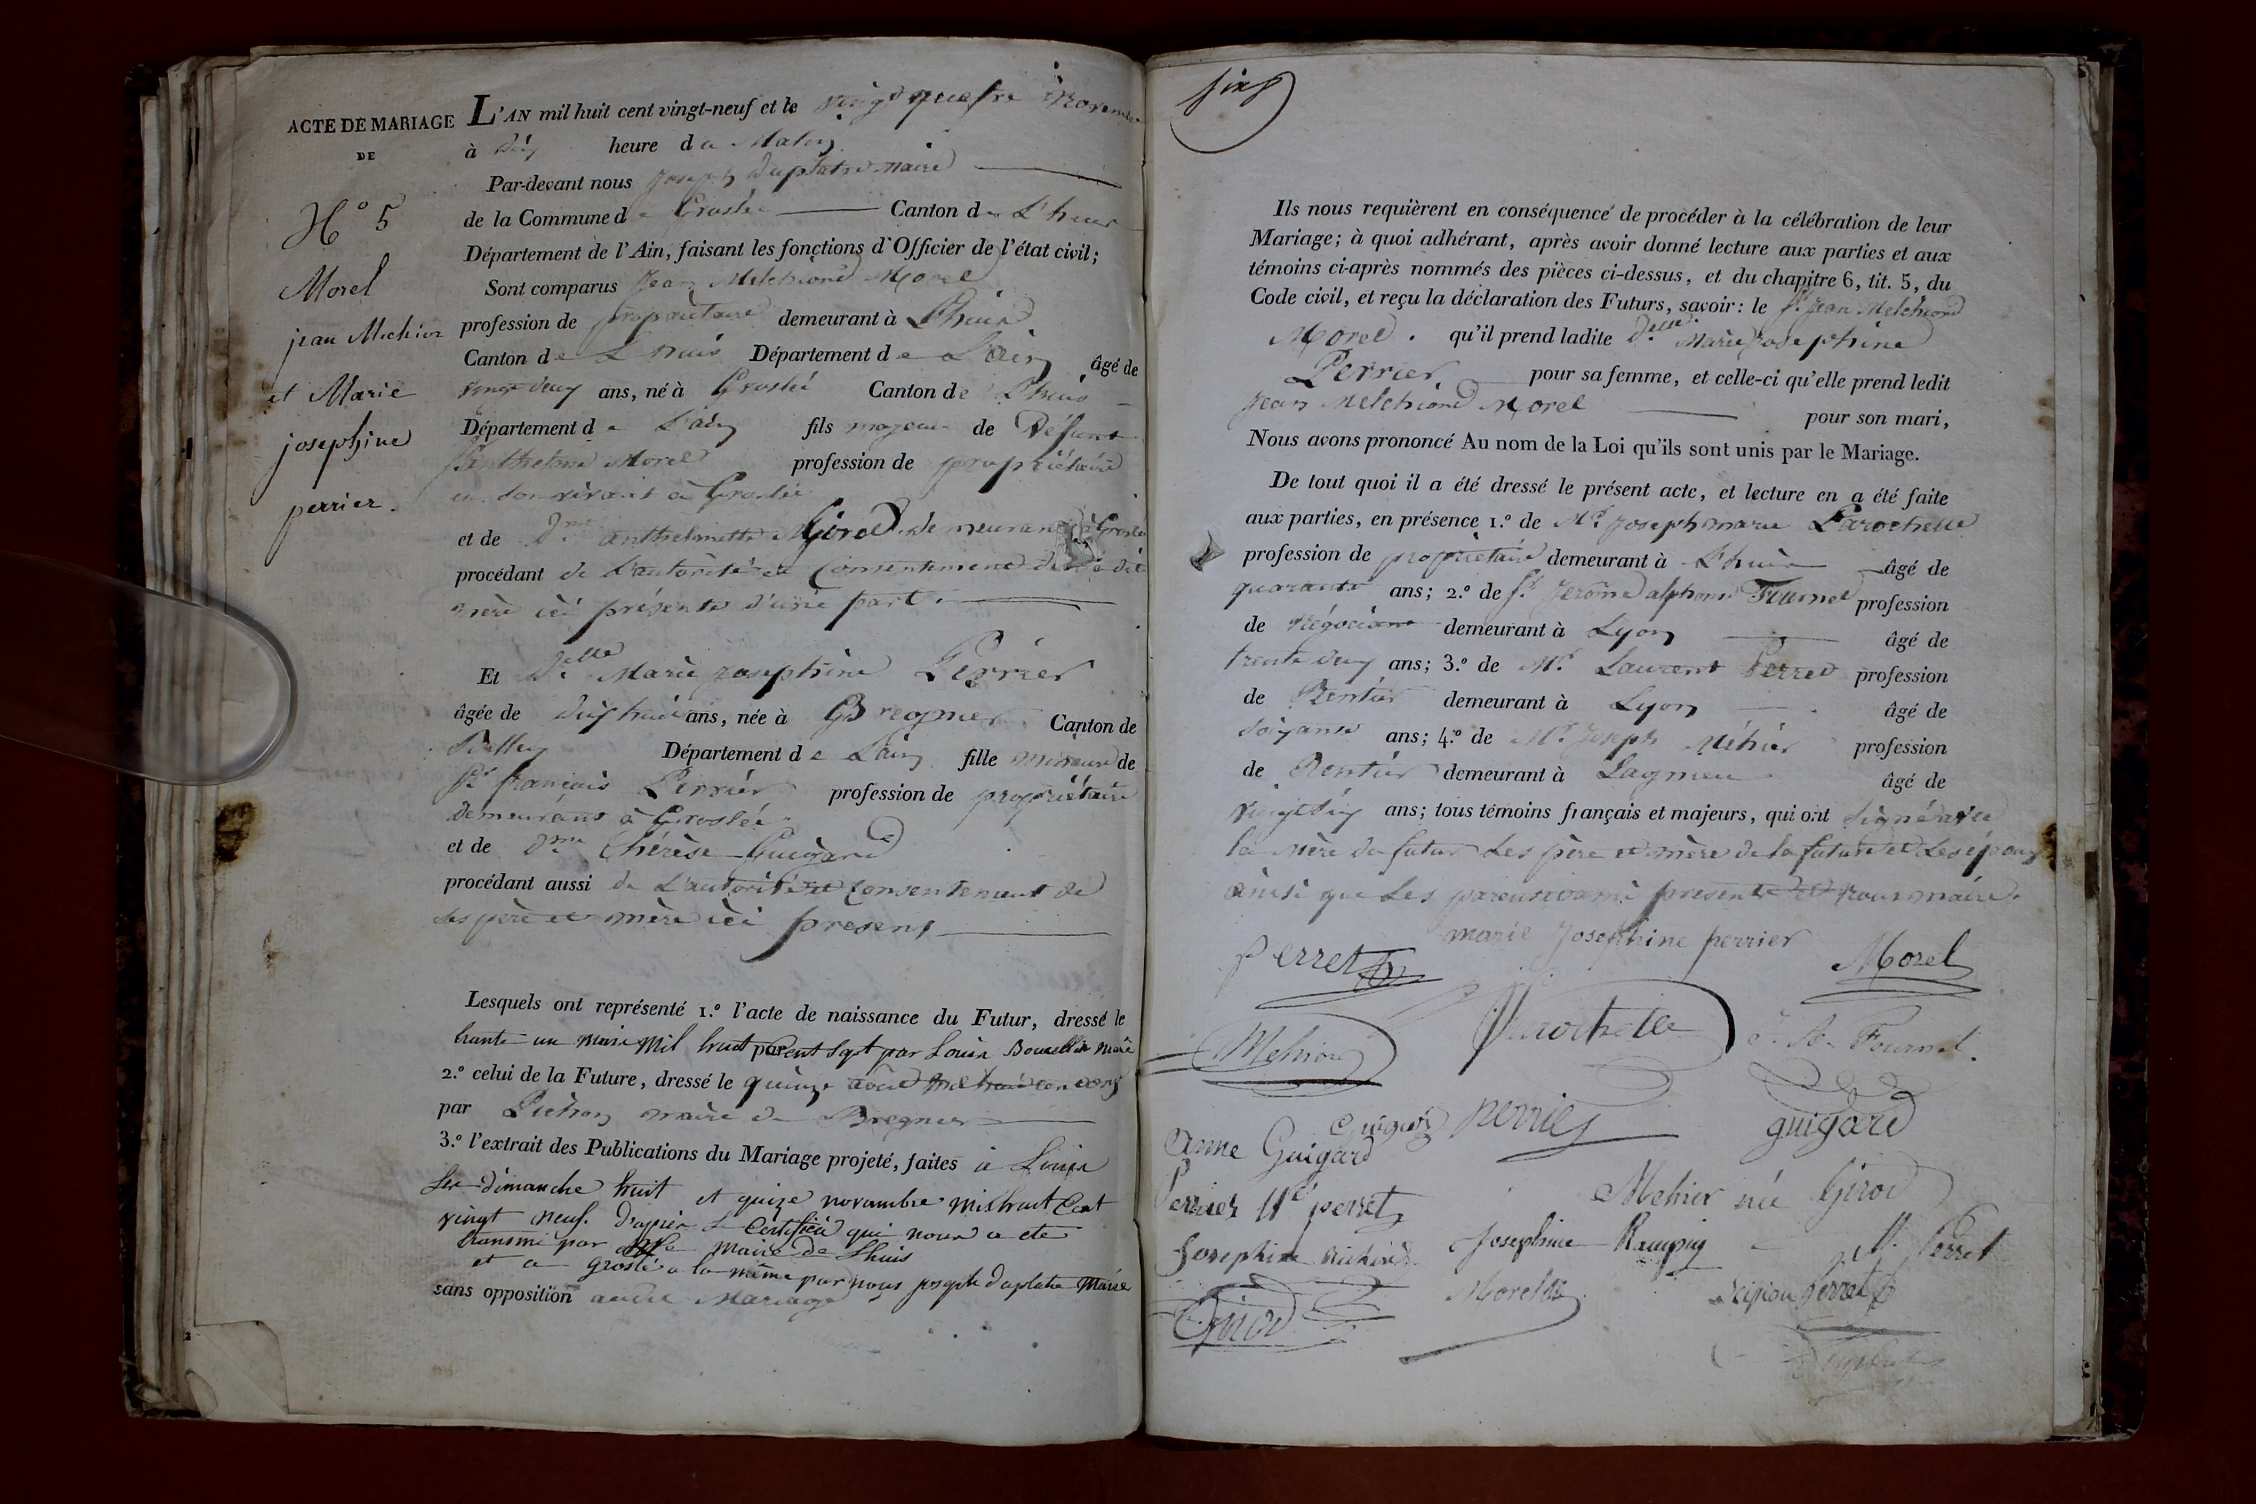 ACTE DE MARIAGE
DE
N.º 5
Morel
jean Melchior
et Marie
josephine
perrier.
L'AN mil huit cent vingt-neuf et le vingt quatre Novembre
à dix heure du Matin
Par-devant nous Joseph duplatre maire
de la Commune de Groslée Canton de L'huis
Département de l'Ain, faisant les fonctions d'Officier de l'état civil;
Sont comparus Jean Melchiord Morel
profession de propriétaire demeurant à L'huis
Canton de L'huis Département de L'ain âgé de
vingt deux ans, né à Groslée Canton de L'huis
Département de L'ain fils majeur de Défunt
Anthelme Morel profession de propriétaire
en son vivant à Groslée
et de D.me anthelmette Girod demeurant à Groslée
procédant de L'autorité et Consentement de sa dite
mère ici présente d'une part.
Et D.elle Marie Josephine Perrier
âgée de dix huit ans, née à Bregnier Canton de
Belley Département de L'ain fille mineure de
S.r françois Perrier profession de propriétaire
demeurant à Groslée
et de D.me Thérèse Guigard
procédant aussi de L'autorité et Consentement de
ses père et mère ici present
Lesquels ont représenté 1.º l'acte de naissance du Futur, dressé le
trante un mars mil huit cent sept par Louis maire
2.º celui de la Future, dressé le quinze août mil huit cent onze
par maire de Bregnier
3.º l'extrait des Publications du Mariage projeté, faites à Lhuis
Les dimanche huit et quize novambre mil huit Cent
vingt neuf. D'aprèr Le Certificat qui nous a ete
transmi par Mr le Maire de Lhuis
et a Groslée a la même par nous joseph duplatre Maire
sans opposition audit Mariage
Ils nous requièrent en conséquence de procéder à la célébration de leur
Mariage; à quoi adhérant, après avoir donné lecture aux parties et aux
témoins ci-après nommés des pièces ci-dessus, et du chapitre 6, tit. 5, du
Code civil, et reçu la déclaration des Futurs, savoir: le S.r Jean Melchiord
Morel. qu'il prend ladite D.elle Marie Josephine
Perrier pour sa femme, et celle-ci qu'elle prend ledit
Jean Melchiord Morel pour son mari,
Nous avons prononcé Au nom de la Loi qu'ils sont unis par le Mariage.
De tout quoi il a été dressé le présent acte, et lecture en a été faite
aux parties, en présence 1.º de M.r Joseph marie Larochette
profession de propriétaire demeurant à L'huis âgé de
quarante ans; 2.º de S.r Jerôme alphonse Fournel profession
de Négociant demeurant à Lyon âgé de
trente deux ans; 3.º de M.r Laurent Perret profession
de Rentier demeurant à Lyon âgé de
soixante ans; 4.º de M.r Joseph Méhier profession
de Rentier demeurant à Lagnieu âgé de
vingt six ans; tous témoins français et majeurs, qui ont signé avec
la Mère du futur Les père et mère de la future et Les époux
ainsi que Les parens et ami présents et nous maire.
Perret
marie Josephine perrier
Morel
Mehier
Larochette
J. A. Fournel.
Guigard
perrier
guigard
Anne Guigard
Perrier née perret
Mehier née Girod
Josephine
Josephine
M. Perret
Girod
Morel
Scipion Perret
Duplatre